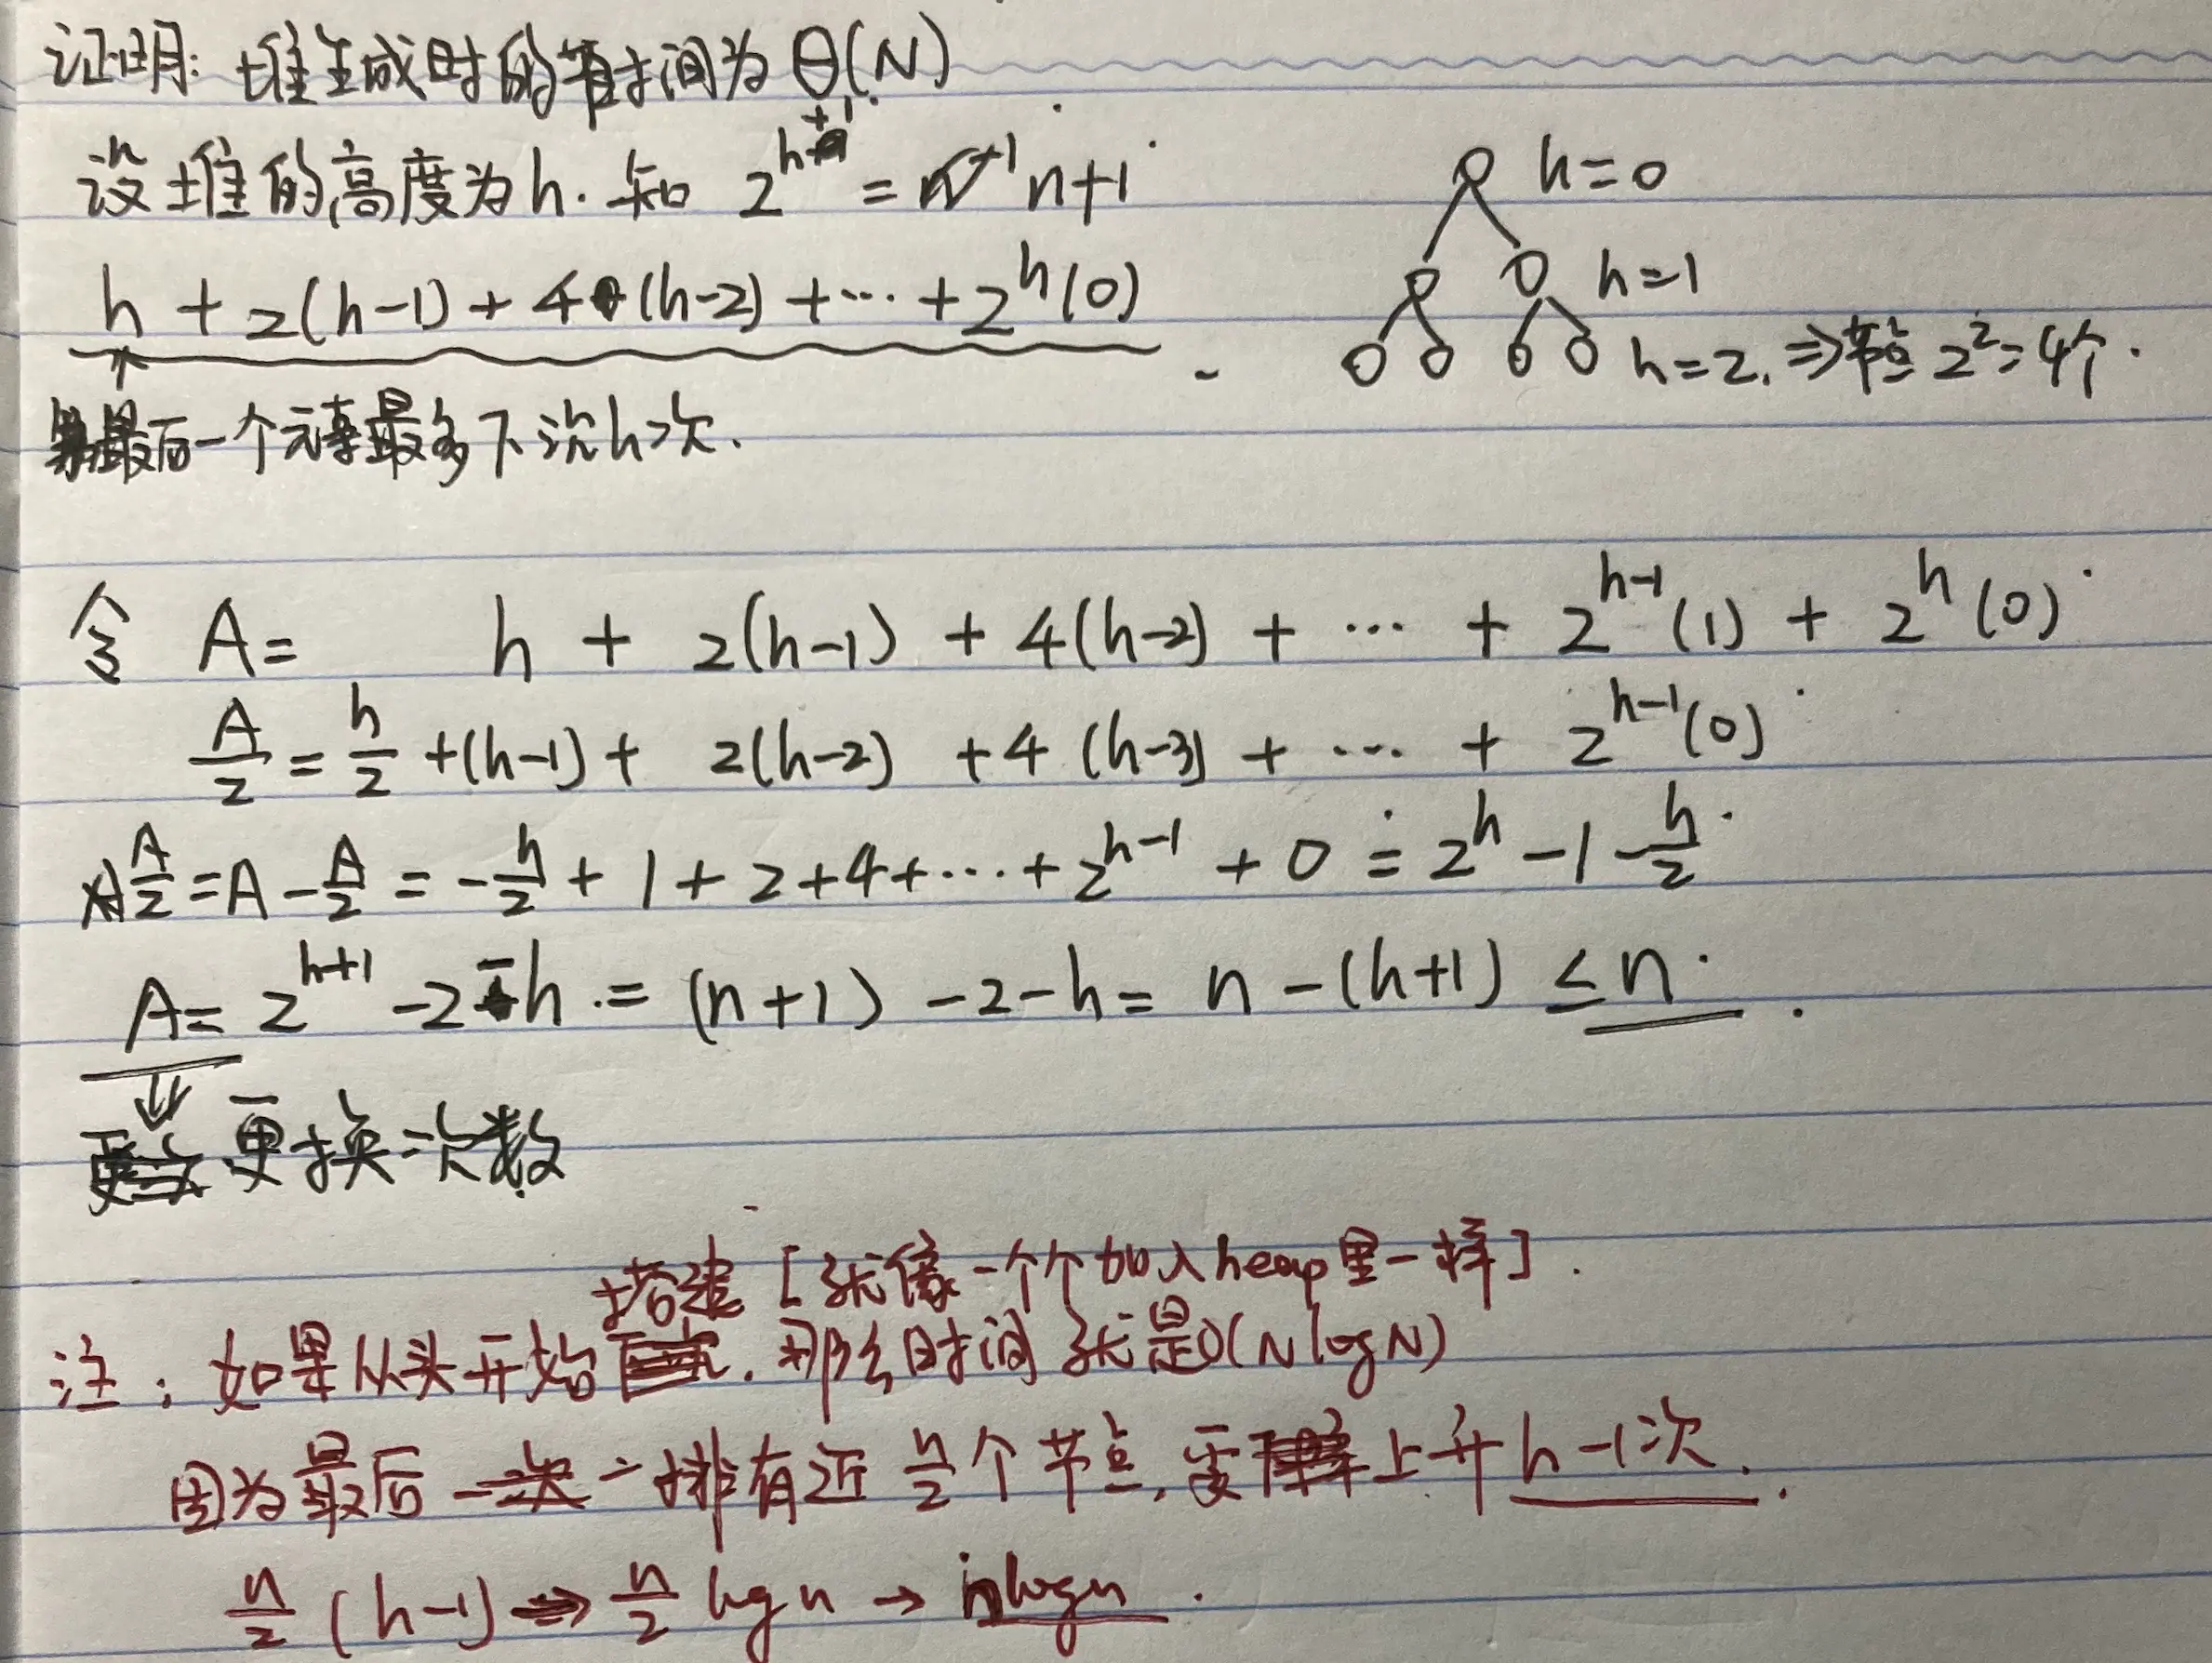 证明: 堆生成时的时间为 Θ(N)
设堆的高度为h. 知 2^{h+1} = n+1
h=0
h + 2(h-1) + 4(h-2) + ... + 2^h(0)
h=1
h=2. ⇒节点 2^2=4个.
最后一个元素最多下沉h次.
令 A = h + 2(h-1) + 4(h-2) + ... + 2^{h-1}(1) + 2^h(0)
A/2 = h/2 + (h-1) + 2(h-2) + 4(h-3) + ... + 2^{h-1}(0)
A/2 = A - A/2 = -h/2 + 1 + 2 + 4 + ... + 2^{h-1} + 0 = 2^h - 1 - h/2
A = 2^{h+1} - 2 - h = (n+1) - 2 - h = n - (h+1) ≤ n.
⇓
更换次数
搭建 [就像一个个加入heap里一样].
注: 如果从头开始, 那么时间就是O(NlogN)
因为最后一排有近 n/2 个节点, 要上升 h-1次.
n/2 (h-1) ⇒ n/2 log n → nlogn.